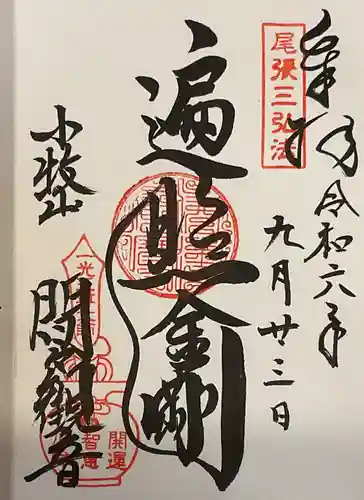 奉拝
令和六年
九月廿三日
尾張三弘法
遍照金剛
小牧山
間々観音
開運